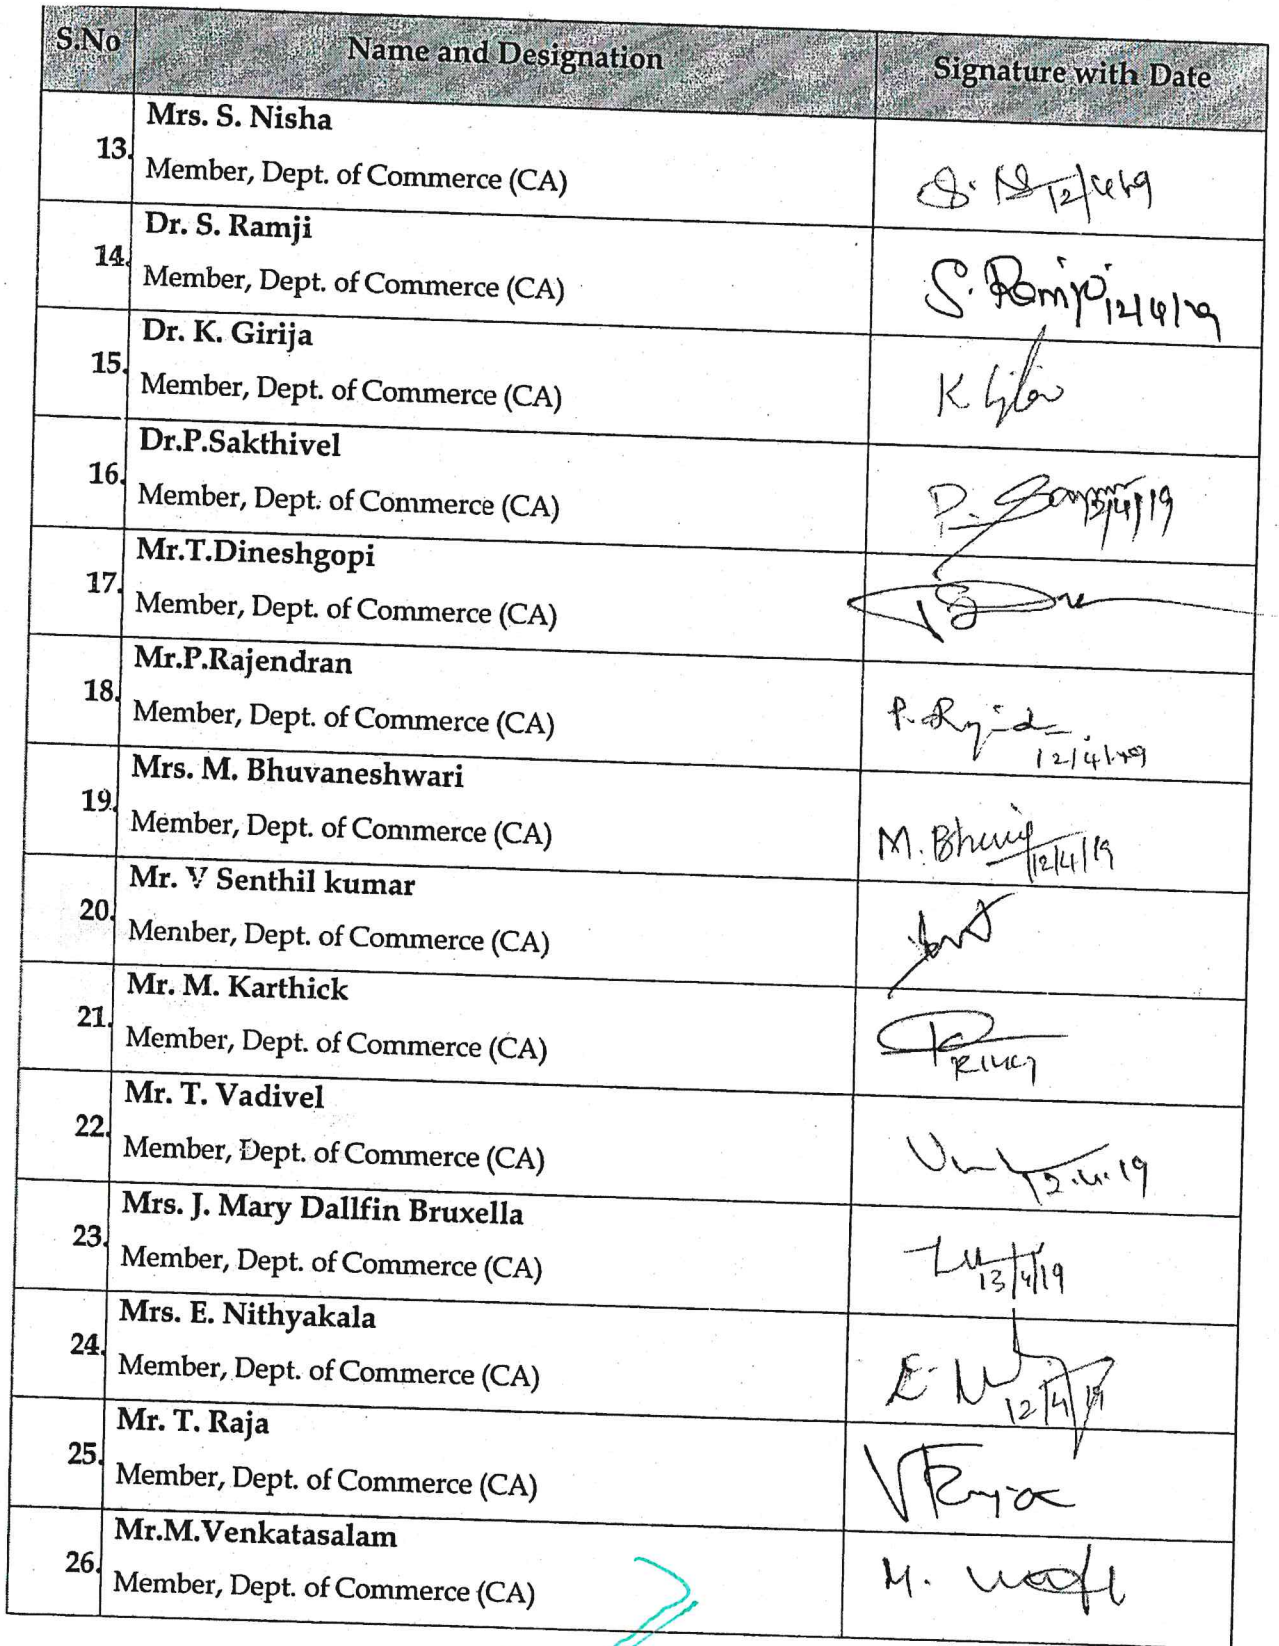 S.No Name and Designation Signature with Date
Mrs. S. Nisha
13.
Member, Dept. of Commerce (CA)
S. 12/4/19
Dr. S. Ramji
14.
Member, Dept. of Commerce (CA)
S. Ramji 12/4/19
Dr. K. Girija
15.
Member, Dept. of Commerce (CA)
K
Dr.P.Sakthivel
16.
Member, Dept. of Commerce (CA)
P. /4/19
Mr.T.Dineshgopi
17.
Member, Dept. of Commerce (CA)
Mr.P.Rajendran
18.
Member, Dept. of Commerce (CA)
P. 
12/4/19
Mrs. M. Bhuvaneshwari
19.
Member, Dept. of Commerce (CA)
M. 12/4/19
Mr. V Senthil kumar
20.
Member, Dept. of Commerce (CA)
Mr. M. Karthick
21.
Member, Dept. of Commerce (CA)
Mr. T. Vadivel
22.
Member, Dept. of Commerce (CA)
12.4.19
Mrs. J. Mary Dallfin Bruxella
23.
Member, Dept. of Commerce (CA)
13/4/19
Mrs. E. Nithyakala
24.
Member, Dept. of Commerce (CA)
E. 12/4/19
Mr. T. Raja
25.
Member, Dept. of Commerce (CA)
Mr.M.Venkatasalam
26.
Member, Dept. of Commerce (CA)
M.